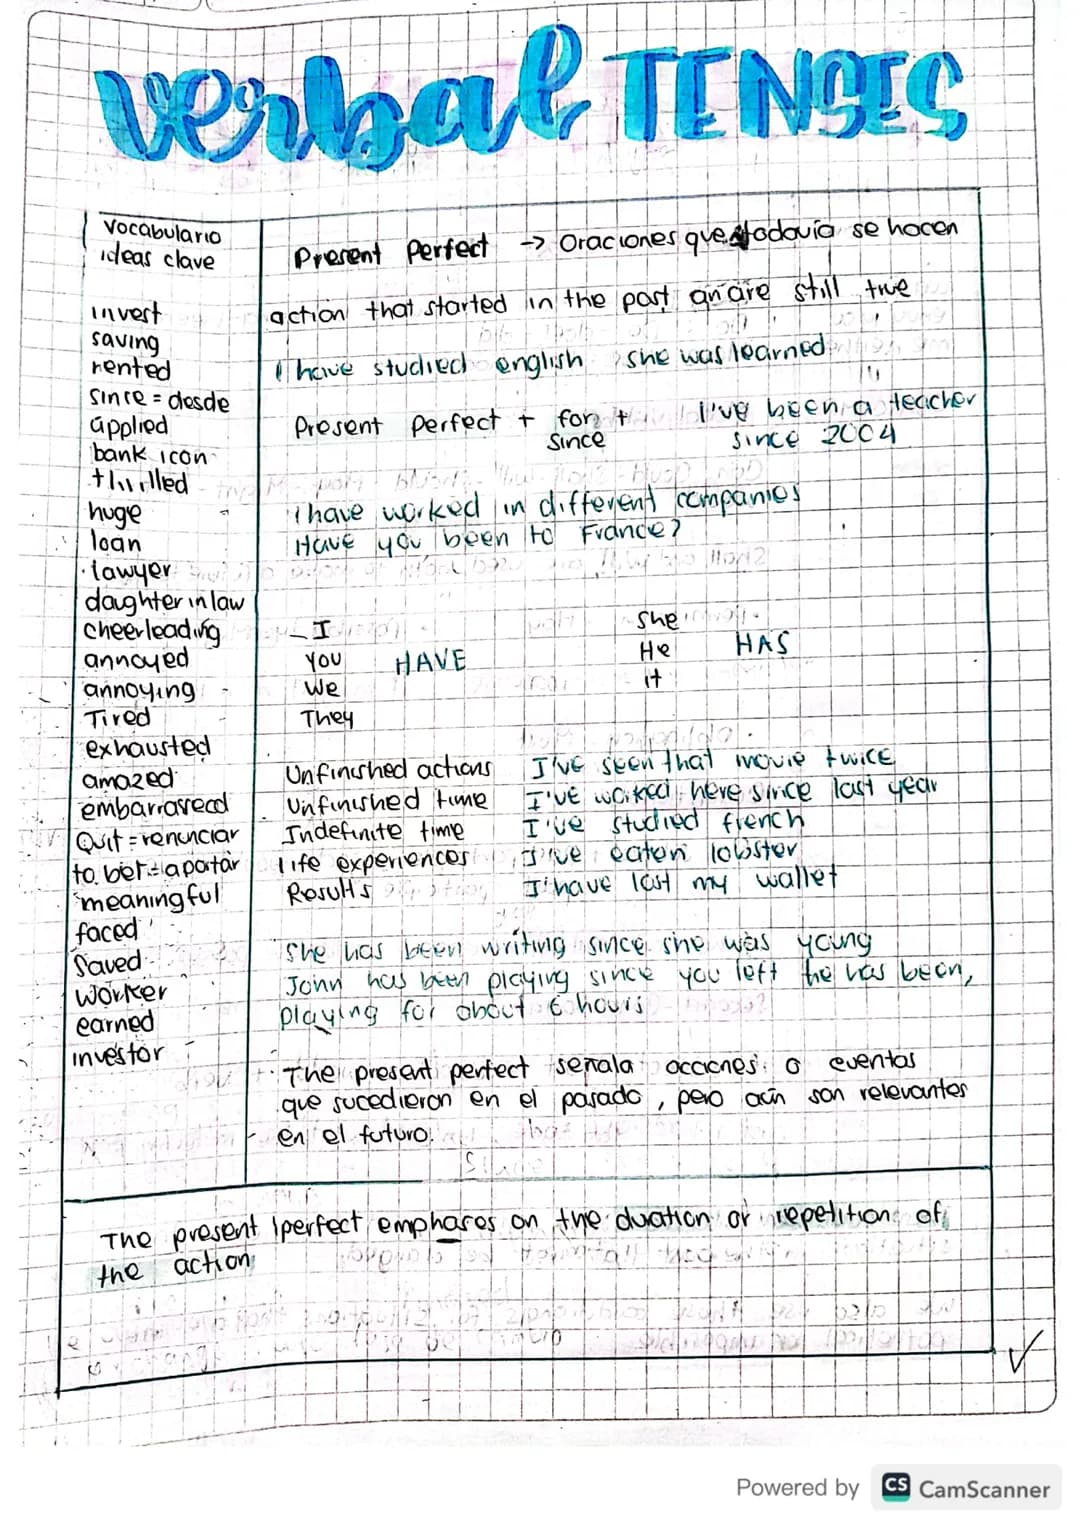 Verbal TENSES
Vocabulario
ideas clave
invest
saving
rented
Since = desde
applied
bank icon
thrilled
huge
loan
lawyer
daughter in law
cheerleading
annoyed
annoying
Tired
exhausted
amazed
embarrased
Quit = renunciar
to bet = apostar
meaningful
faced
Saved
worker
earned
investor
Present Perfect → Oraciones que todavía se hacen
action that started in the past an are still true
I have studied english she was learned
Present perfect + for + I've been a teacher
since since 2004
I have worked in different companies
Have you been to France?
I She
You HAVE He HAS
We it
They
Unfinished actions I've seen that movie twice
Unfinished time I've worked here since last year
Indefinite time I've studied french
life experiences I've eaten lobster
Results I have lost my wallet
She has been writing since she was young
John has been playing since you left he has been,
playing for about 6 hours
The present perfect señala acciones o eventos
que sucedieron en el pasado, pero aún son relevantes
en el futuro.
The present perfect emphases on the duation or repetition of
the action
Powered by CS CamScanner